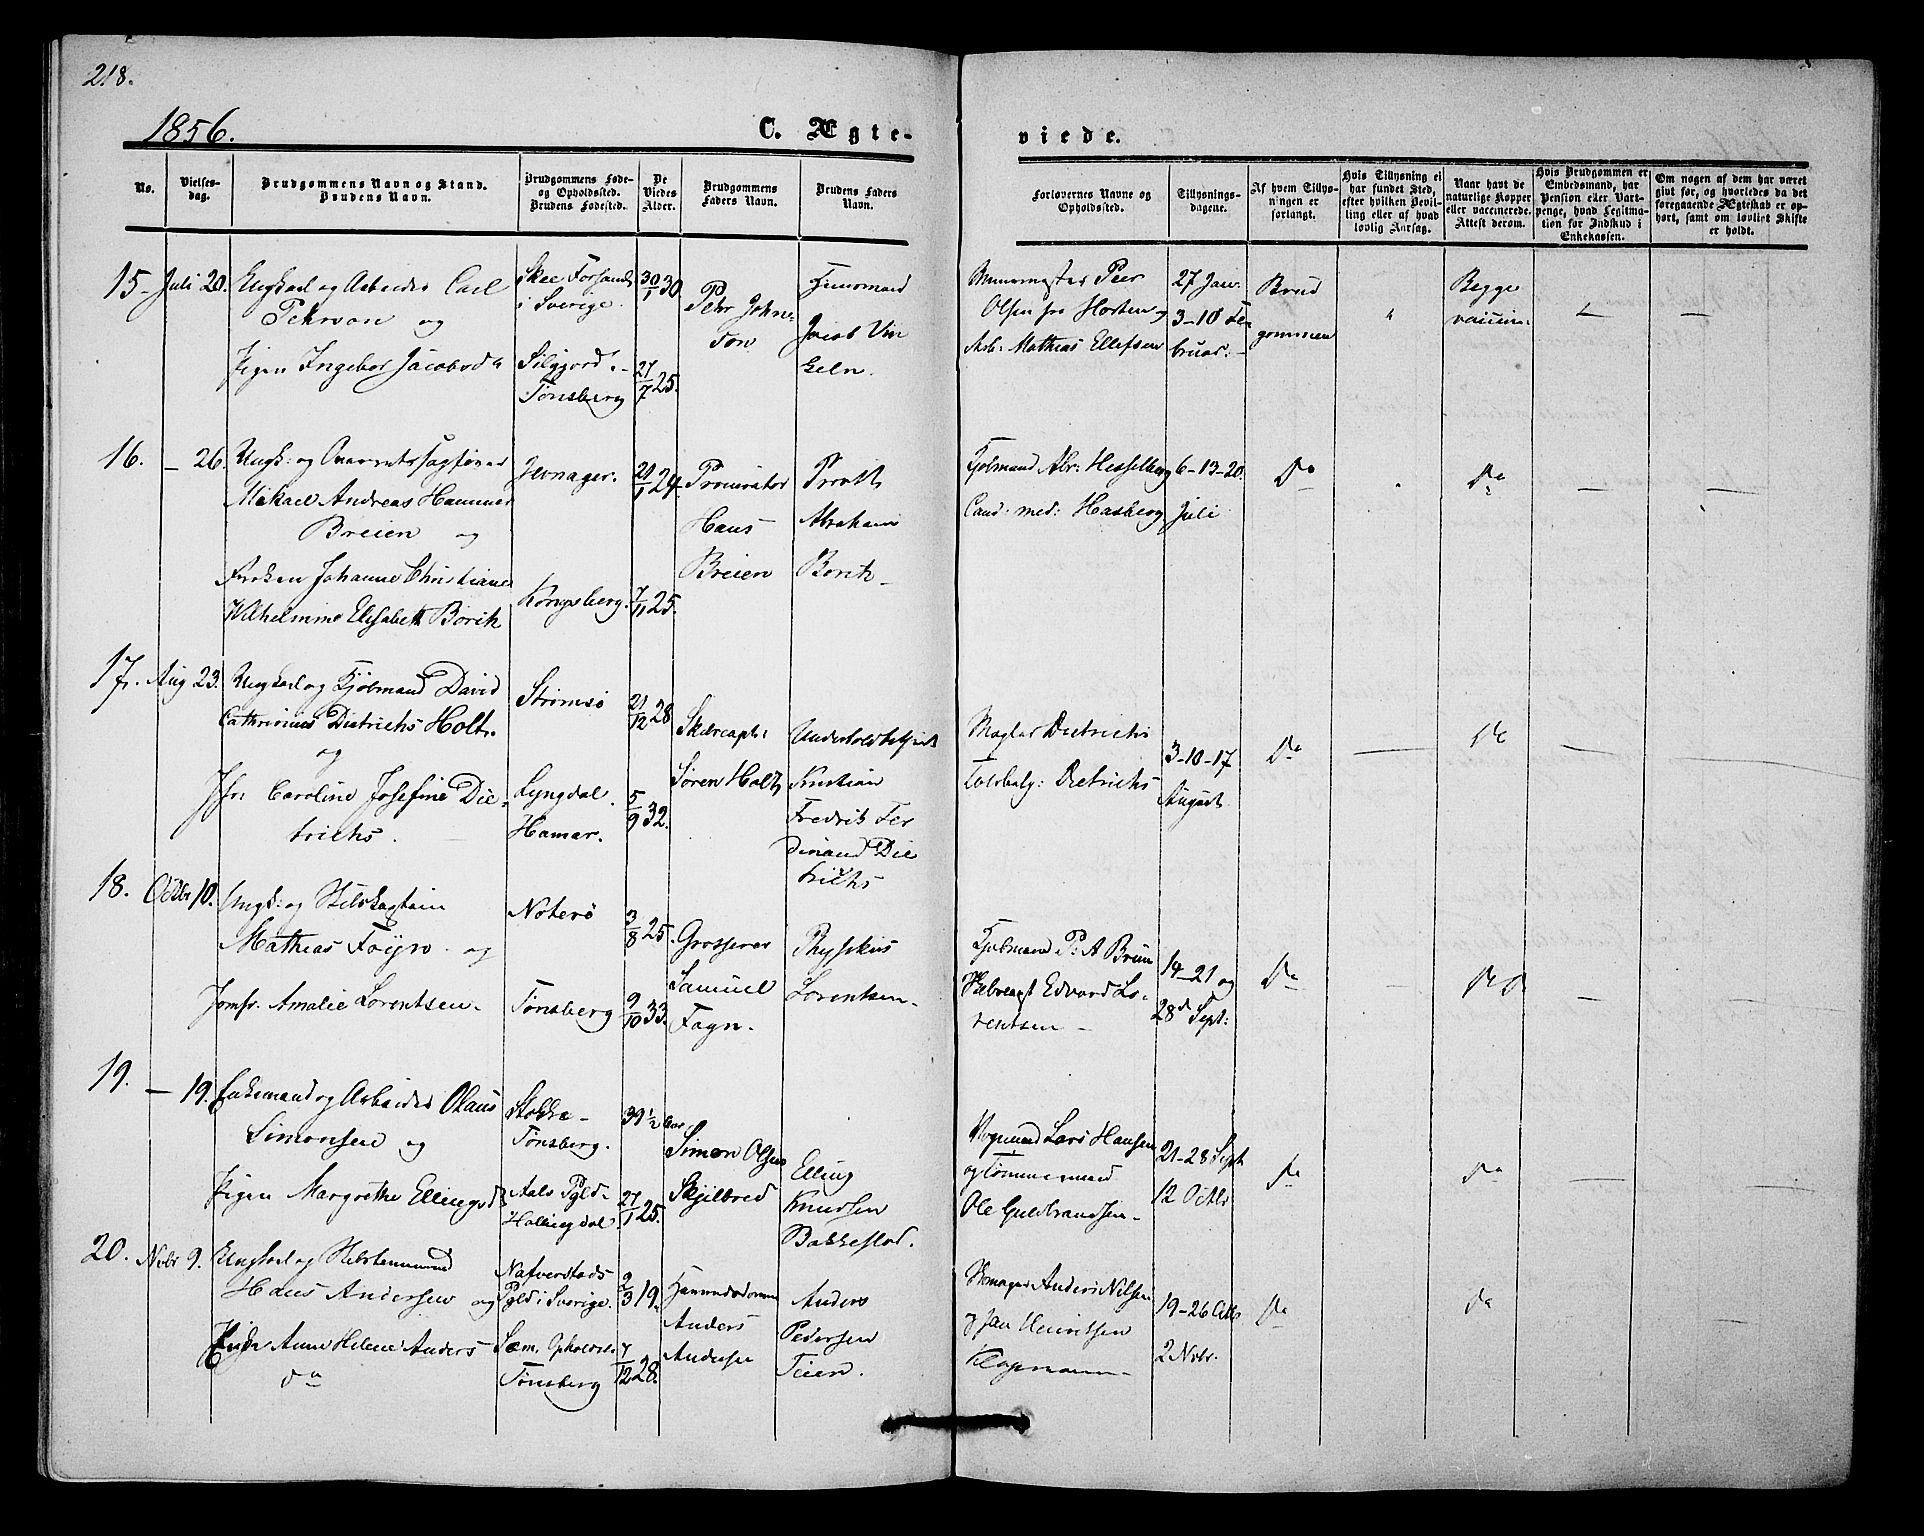 218.
1856.
C. Ægte-
viede.
No.
Vielses-
dag.
Brudgommens Navn og Stand.
Brudens Navn.
Brudgommens Føde-
og Opholdssted.
Brudens Fødested.
De
Viedes
Alder.
Brudgommens
Faders Navn.
Brudens Faders
Navn.
Forlovernes Navne og
Opholdssted.
Tillysnings-
dagene.
Af hvem Tillys-
ningen er
forlangt.
Hvis Tillysning ei
har fundet Sted,
efter hvilken Bevil-
ling eller af hvad
lovlig Aarsag.
Naar havt de
naturlige Kopper
eller vaccinerede.
Attest derom.
Hvis Brudgommen er
Embedsmand, har
Pension eller Vart-
penge, hvad Legitima-
tion for Indskud i
Enkekassen.
Om nogen af dem har været
givt før, og hvorledes da det
foregaaende Ægteskab er op-
hørt, samt om lovligt Skifte
er holdt.
15 Juli 20. Ungkarl og Arbeider Carl
Pehrson og
Pigen Ingebor Jacobsd
Skee Forsaml
i Sverige.
Siljjord
Tønsberg
30/1 30
21/7 25.
Pehr John-
son
Huusmand
Jacob Vin
Olsen fra Horten og
Arb: Mathias Ellefsen
27 Jan.
3-10 Fe
bruar.
Brud
gommen
Begge
vaccin.
16. — 26. Ungk: og Overretssagfører
Mikael Andreas Hammer
Breien og
Frøken Johanne Christiane
Wilhelmine Elisabeth Borch
Jevnager.
Kongsberg.
29.
7/11 25.
Procurator
Hans
Breien
Provst
Abraham
Borch
Kjøbmand Abr: Hesselberg
Cand. med: Hasberg
6-13-20
Juli
Do
Do
17. Aug 23. Ungkarl og Kjøbmand David
Cathrinus Dietrichs Holt.
og
Jfr. Caroline Josefine Die-
trichs.
Strømsø
Lyngdal
Hamar.
21/12 28
5/9 32.
Skibscapt:
Søren Holt
Kristian
Fredrik Fer
dinand Die
trichs
Mægler Dietrichs
Toldbetj: Dietrichs
3-10-17
August
Do
Do
18. Octbr 10. Ungk: og Skibskaptain
Mathias Føyn og
Jomfr. Amalie Lorentsen.
Noterø
Tønsberg
3/8 25.
9/10 33.
Grosserer
Samuel
Føyn.
Physikus
Lorentsen
Kjøbmand P: A Bruun
Edvard Lo-
rentsen
14-21 og
28d Sept:
Do
Do
19. — 19. Enkemand og Arbeider Olaus
Simonsen og
Pigen Margrethe Ellingsd
Stokke
Tønsberg.
Aals Pgld
Hallingdal
39 1/2 Aar
21/1 25.
Simon Olsen
Skjelbred
Elling
Knudsen
Bakkestad.
Vognmand Lars Hansen
og Tømmermand
Ole Guldbrandsen
21-28 Sept
12 Octbr
Do
Do
20. Novbr 9. Ungkarl og Skibstømmermand
Hans Andersen og
Anne Helene Anders
da
Nafverstads
Pgld i Sverige.
Sem.
Tønsberg
2/3 19.
7/12 28.
Anders
Andersen
Anders
Pedersen
Teien.
Skomager Anders Nilsen
og Jan Henriksen
19-26 Octbr
2 Novbr.
Do
Do